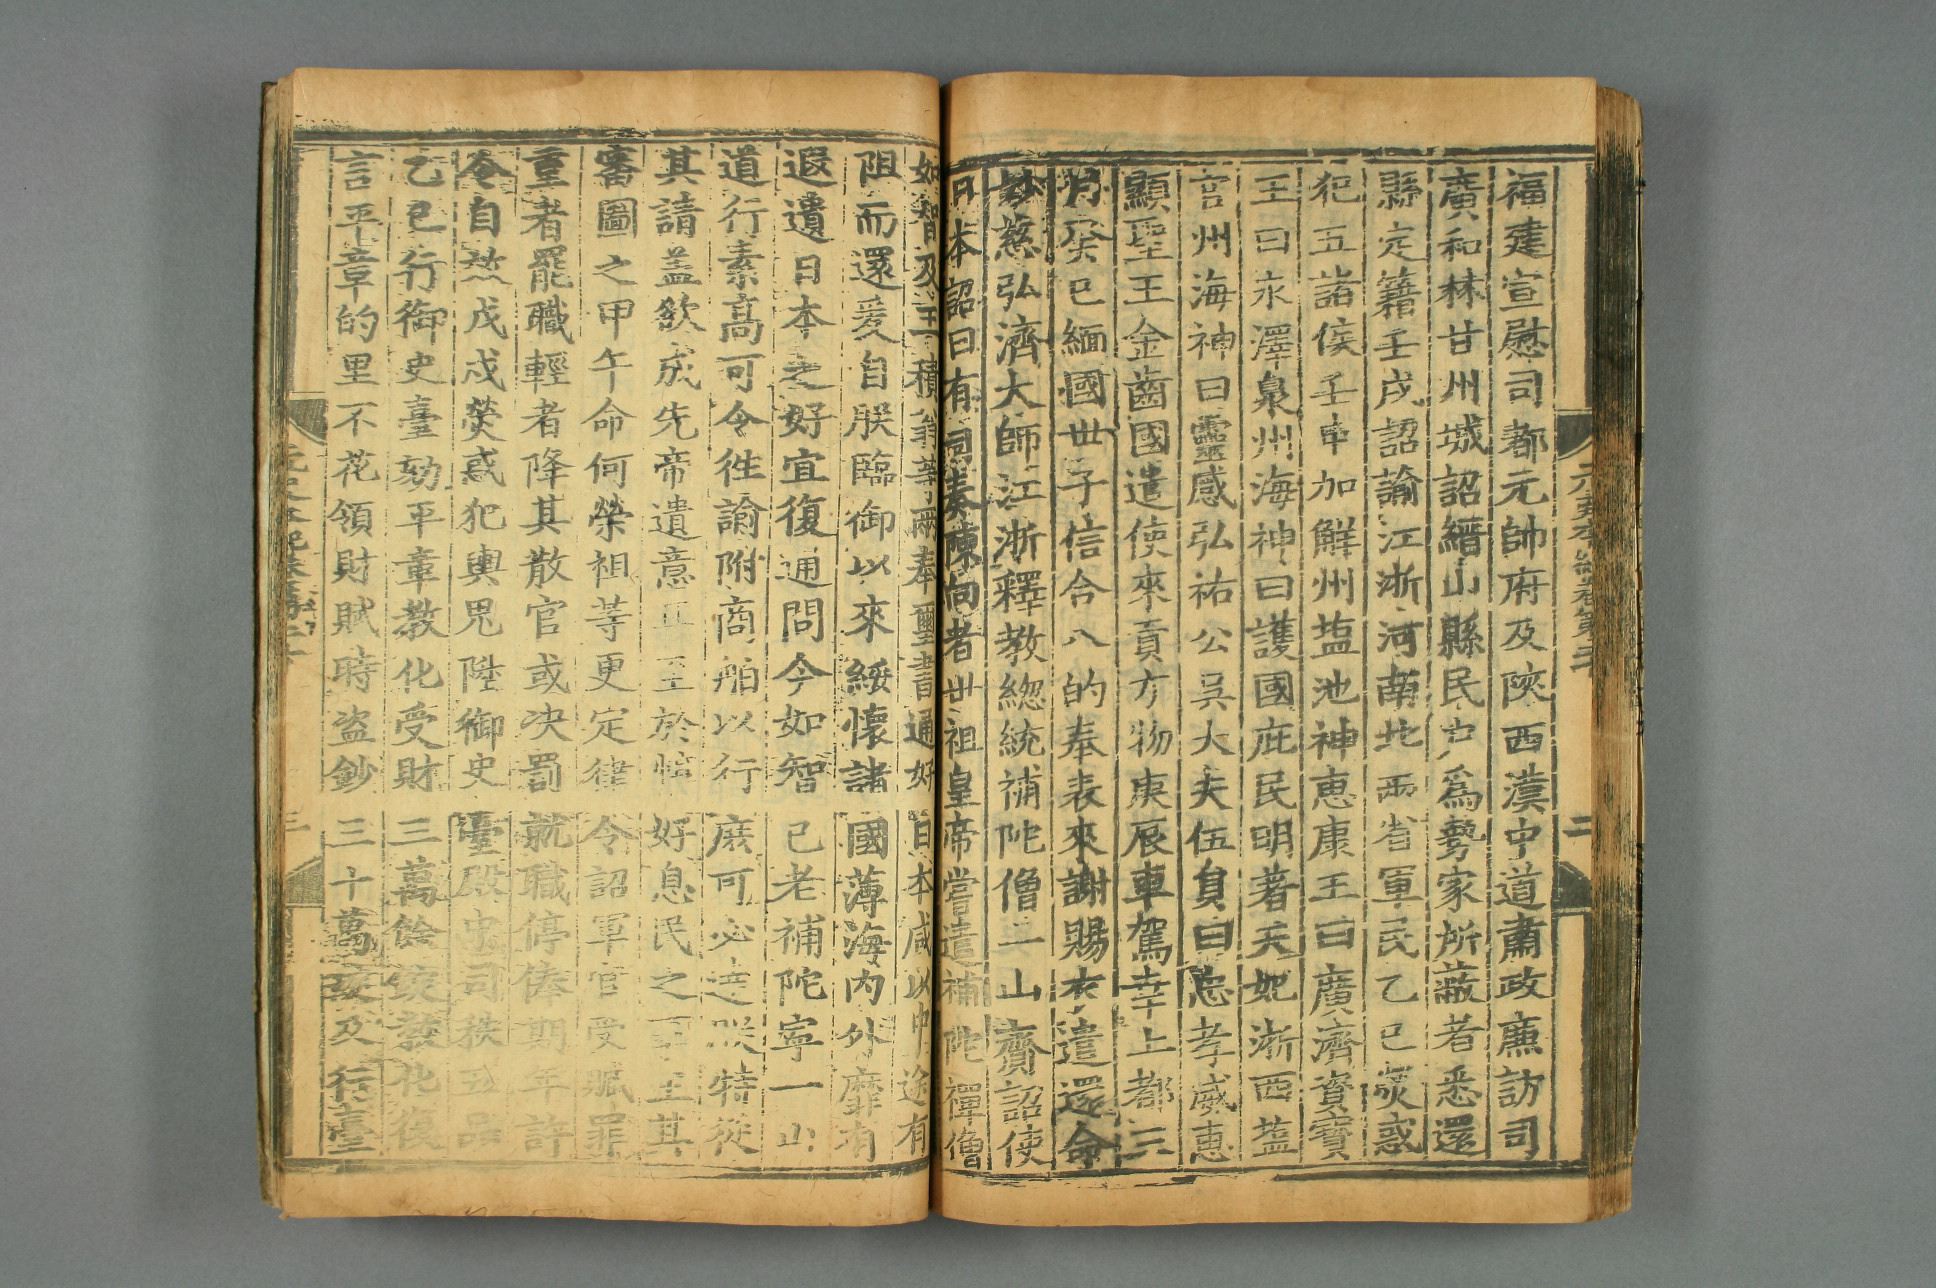 福建宣慰司都元帥府及陝西漢中道肅政廉訪司
廣和林甘州城詔縉山縣民户爲勢家所蔽者悉還
縣定籍壬戌詔諭江浙河南北两省軍民乙巳熒惑
犯五諸侯壬申加解州塩池神惠康王曰廣濟資寳
王曰永澤泉州海神曰護國庇民明著天妃浙西塩
官州海神曰靈感弘祐公吴大夫伍負曰忠孝威惠
顯聖王金齒國遣使來貢方物庚辰車駕幸上都三
月癸巳緬國世子信合八的奉表來謝賜衣遣還命
妙慈弘濟大師江浙釋教緫統補陀僧一山齎詔使
日本詔曰有司奏陳向者世祖皇帝嘗遣補陀禪僧
如智及王積翁等兩奉璽書通好日本咸以中途有
阻而還爰自朕臨御以來綏懷諸國薄海内外靡有
遐遺日本之好宜復通問今如智已老補陀寧一山
道行素高可令徃諭附商舶以行庶可必逹朕特從
其請盖欲成先帝遺意至於惇好息民之事王其
審圖之甲午命何榮祖等更定律令詔軍官受贓罪
重者罷職輕者降其散官或决罰就職停俸期年許
令自效戊戌熒惑犯輿鬼陞御史臺殿中司秩五品
乙巳行御史臺劾平章教化受財三萬餘錠教化復
言平章的里不花領財賦時盗鈔三十萬錠及行臺